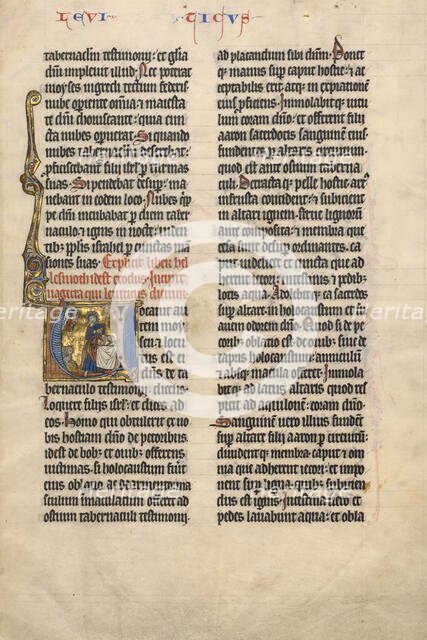 LEVI TICUS
tabernaculum testimonij: et glia
dni impleuit illud. Nec poterat
moyses ingredi tectum federis
nube operiente omnia et maiesta
te dni choruscante: quia cun
cta nubes operuerat. Si quando
nubes tabernaculum deserebat:
proficiscebantur filij israel per turmas
suas. Si pendebat desuper: ma
nebant in eodem loco. Nubes quip
pe dni incubabat per diem taber
naculo et ignis in nocte: uiden
tibus populis israhel per cunctas man
siones suas. Explicit liber hel
lesmoth id est exodus. Incipit
uagecra qui leuiticus dicitur.
Uocauit au
tem moysen
et locutus
est ei domi
nus de ta
bernaculo testimonij: dicens.
Loquere filijs israel: et dices ad
eos. Homo qui obtulerit ex uo
bis hostiam dno de pecoribus:
id est de bobus et ouibus offerens
uictimas: si holocaustum fuerit
eius oblatio ac de armento: ma
sculum inmaculatum offeret ad
ostium tabernaculi testimonij:
ad placandum sibi dnm. Ponet
que manus super caput hostie: et ac
ceptabilis erit atque in expiationem
eius proficiens. Inmolabitque uitu
lum coram dno: et offerent filij
aaron sacerdotis sanguinem eius
fundentes per altaris circuitum:
quod est ante ostium taberna
culi. Detractaque pelle hostie: ar
frusta concident: et subicient
in altari ignem: strue lignorum
ante composita: et membra que
cesa sunt desuper ordinantes. ca
put uidelicet et cuncta que ad
herent iecori: et intestinis et pedib
lotis aqua. Adolebitque ea sacerdos
super altare in holocaustum et su
auem odorem dno. Quod si de pe
coribus oblatio est de ouibus siue de
capris holocaustum: anniculum
et absque macula offeret. Inmola
bitque ad latus altaris quod res
picit ad aquilonem: coram dno.
Sanguinem uero illius fundent
super altare filij aaron per circuitum:
diuidentque membra: caput et om
nia que adherent iecori: et impo
nent super ligna: quibus subicien
dus est ignis. Intestina uero et
pedes lauabunt aqua: et obla